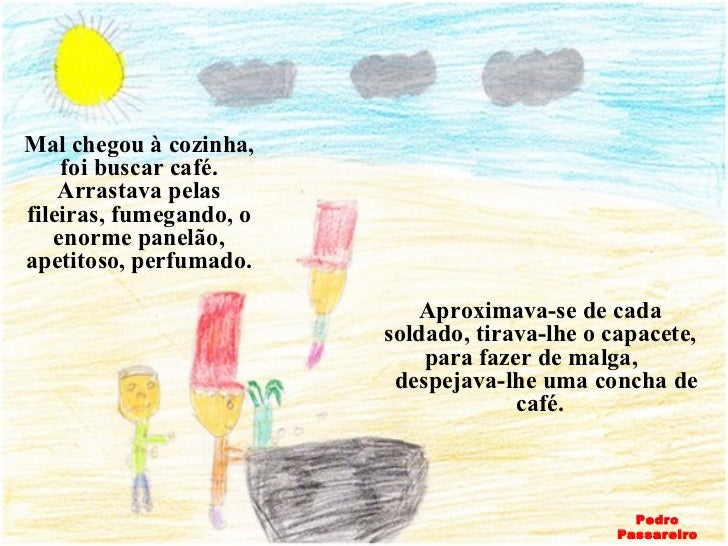 Mal chegou à cozinha,
foi buscar café.
Arrastava pelas
fileiras, fumegando, o
enorme panelão,
apetitoso, perfumado.
Aproximava-se de cada
soldado, tirava-lhe o capacete,
para fazer de malga,
despejava-lhe uma concha de
café.
Pedro
Passareiro